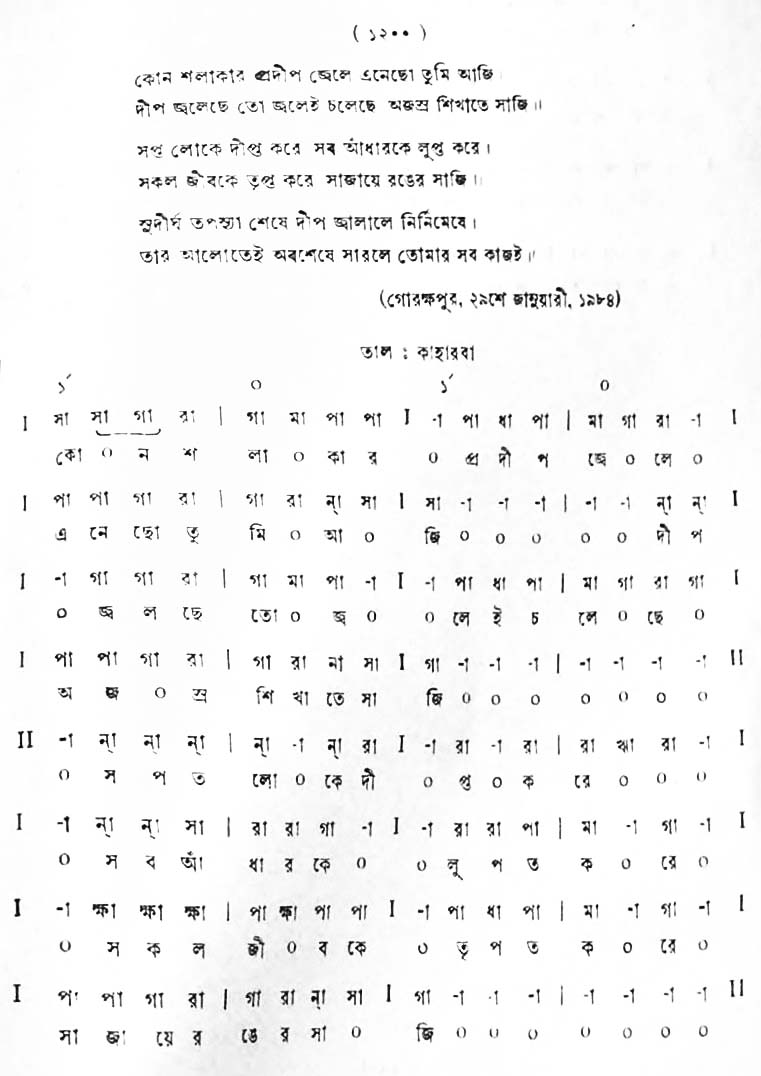 ( ১২०० )
কোন শলাকার প্রদীপ জ্বেলে এনেছো তুমি আজি
দীপ জ্বলেছে তো জ্বলেই চলেছে অজস্র শিখাতে সাজি॥
সপ্ত লোকে দীপ্ত করে সব আঁধারকে লুপ্ত করে।
সকল জীবকে তৃপ্ত করে সাজায়ে রঙের সাজি॥
সুদীর্ঘ তপস্যা শেষে দীপ জ্বালালে নির্নিমেষে।
তার আলোতেই অবশেষে সারলে তোমার সব কাজই॥
(গোরক্ষপুর, ২৯শে জানুয়ারী, ১৯৮৪)
তাল : কাহারবা
১´ ০ ১´ ০
I সা সা গা রা | গা মা পা পা I -া পা ধা পা | মা গা রা -া I
কো ০ ন শ লা ০ কা র ০ প্র দী প জ্বে ০ লে ০
I পা পা গা রা | গা রা ন্া সা I সা -া -া -া | -া -া ন্া ন্া I
এ নে ছো তু মি ০ আ ০ জি ০ ০ ০ ০ ০ দী প
I -া গা গা রা | গা মা পা -া I -া পা ধা পা | মা গা রা গা I
০ জ্ব ল ছে তো ০ জ্ব ০ ০ লে ই চ লে ০ ছে ০
I পা পা গা রা | গা রা না সা I গা -া -া -া | -া -া -া -া II
অ জ ০ স্র শি খা তে সা জি ০ ০ ০ ০ ০ ০ ০
II -া ন্া ন্া ন্া | ন্া -া ন্া রা I -া রা -া রা | রা ঋা রা -া I
০ স প ত লো ০ কে দী ০ প্ত ০ ক রে ০ ০ ০
I -া ন্া ন্া সা | রা রা গা -া I -া রা রা পা | মা -া গা -া I
০ স ব আঁ ধা র কে ০ ০ লু প ত ক ০ রে ০
I -া ক্ষা ক্ষা ক্ষা | পা ক্ষা পা পা I -া পা ধা পা | মা -া গা -া I
০ স ক ল জী ০ ব কে ০ তৃ প ত ক ০ রে ০
I পা পা গা রা | গা রা ন্া সা I গা -া -া -া | -া -া -া -া II
সা জা য়ে র ঙে র সা ০ জি ০ ০ ০ ০ ০ ০ ০